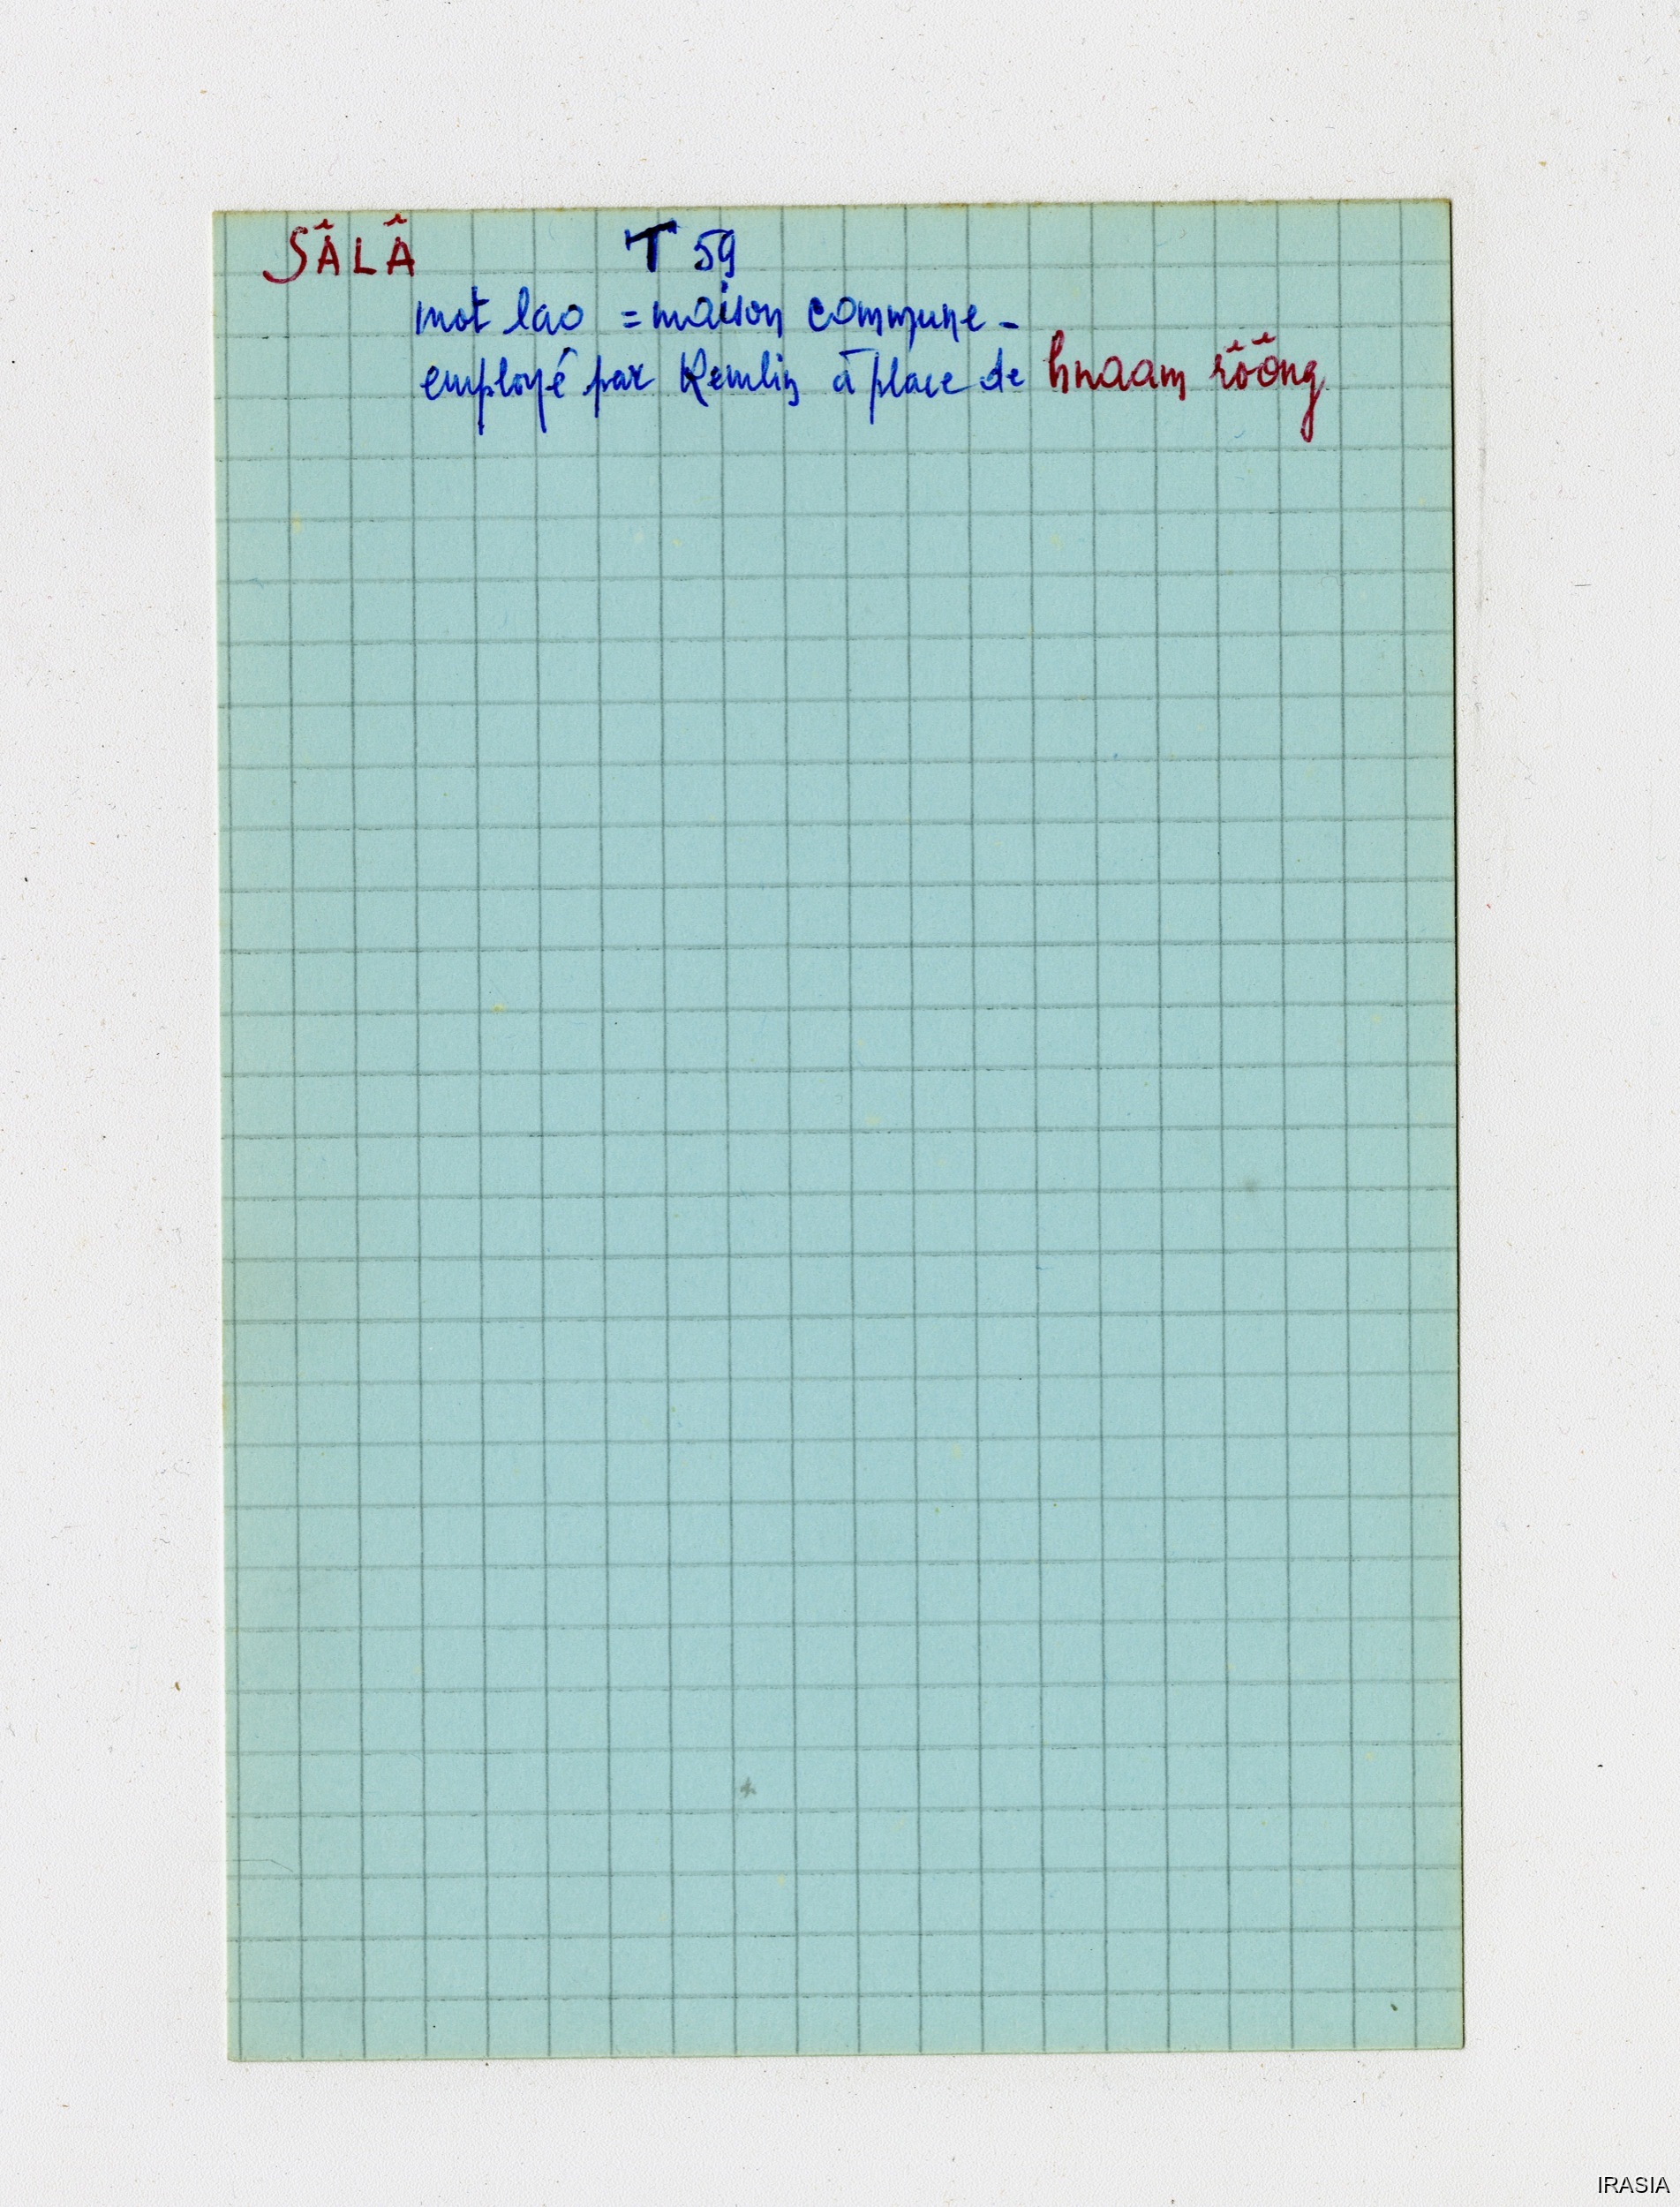 SÂLÂ T 59
mot lao = maison commune -
employé par Kemlin à place de hnaam rôông
IRASIA